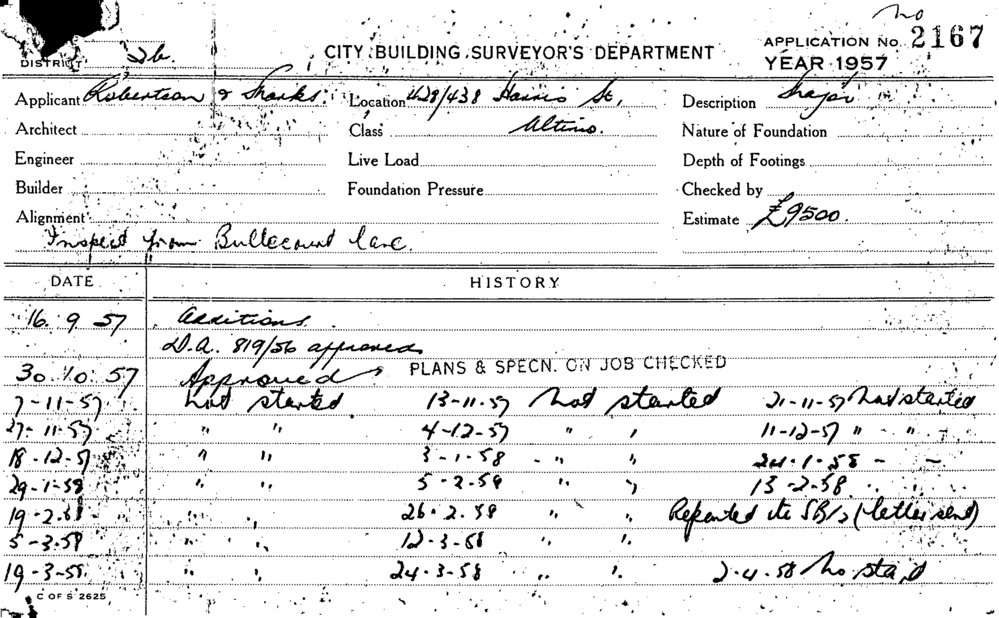 no
DISTRICT 2b. CITY BUILDING SURVEYOR'S DEPARTMENT APPLICATION No. 2167
YEAR 1957
Applicant Robertson & Sharks. Location 428/438 Harris St, Description Major
Architect Class Altino. Nature of Foundation
Engineer Live Load Depth of Footings
Builder Foundation Pressure Checked by
Alignment Estimate £9500.
Inspect from Bullecourt Lane.
DATE HISTORY
16. 9. 57 Additions.
D.A. 819/56 approved
30. 10. 57 Approved PLANS & SPECN. ON JOB CHECKED
7-11-57 not started. 13-11-57 not started 21-11-57 not started
27-11-57 " " 4-12-57 " " 11-12-57 " "
18-12-57 " " 3-1-58 " " 24-1-58 - -
29-1-58 " " 5-2-58 " " 13-2-58 " "
19-2-58 " " 26.2.58 " " Reported to (letter sent)
5-3-58 " " 12-3-58 " "
19-3-58 " " 24-3-58 " " 2-4-58 No start
C OF S 2625